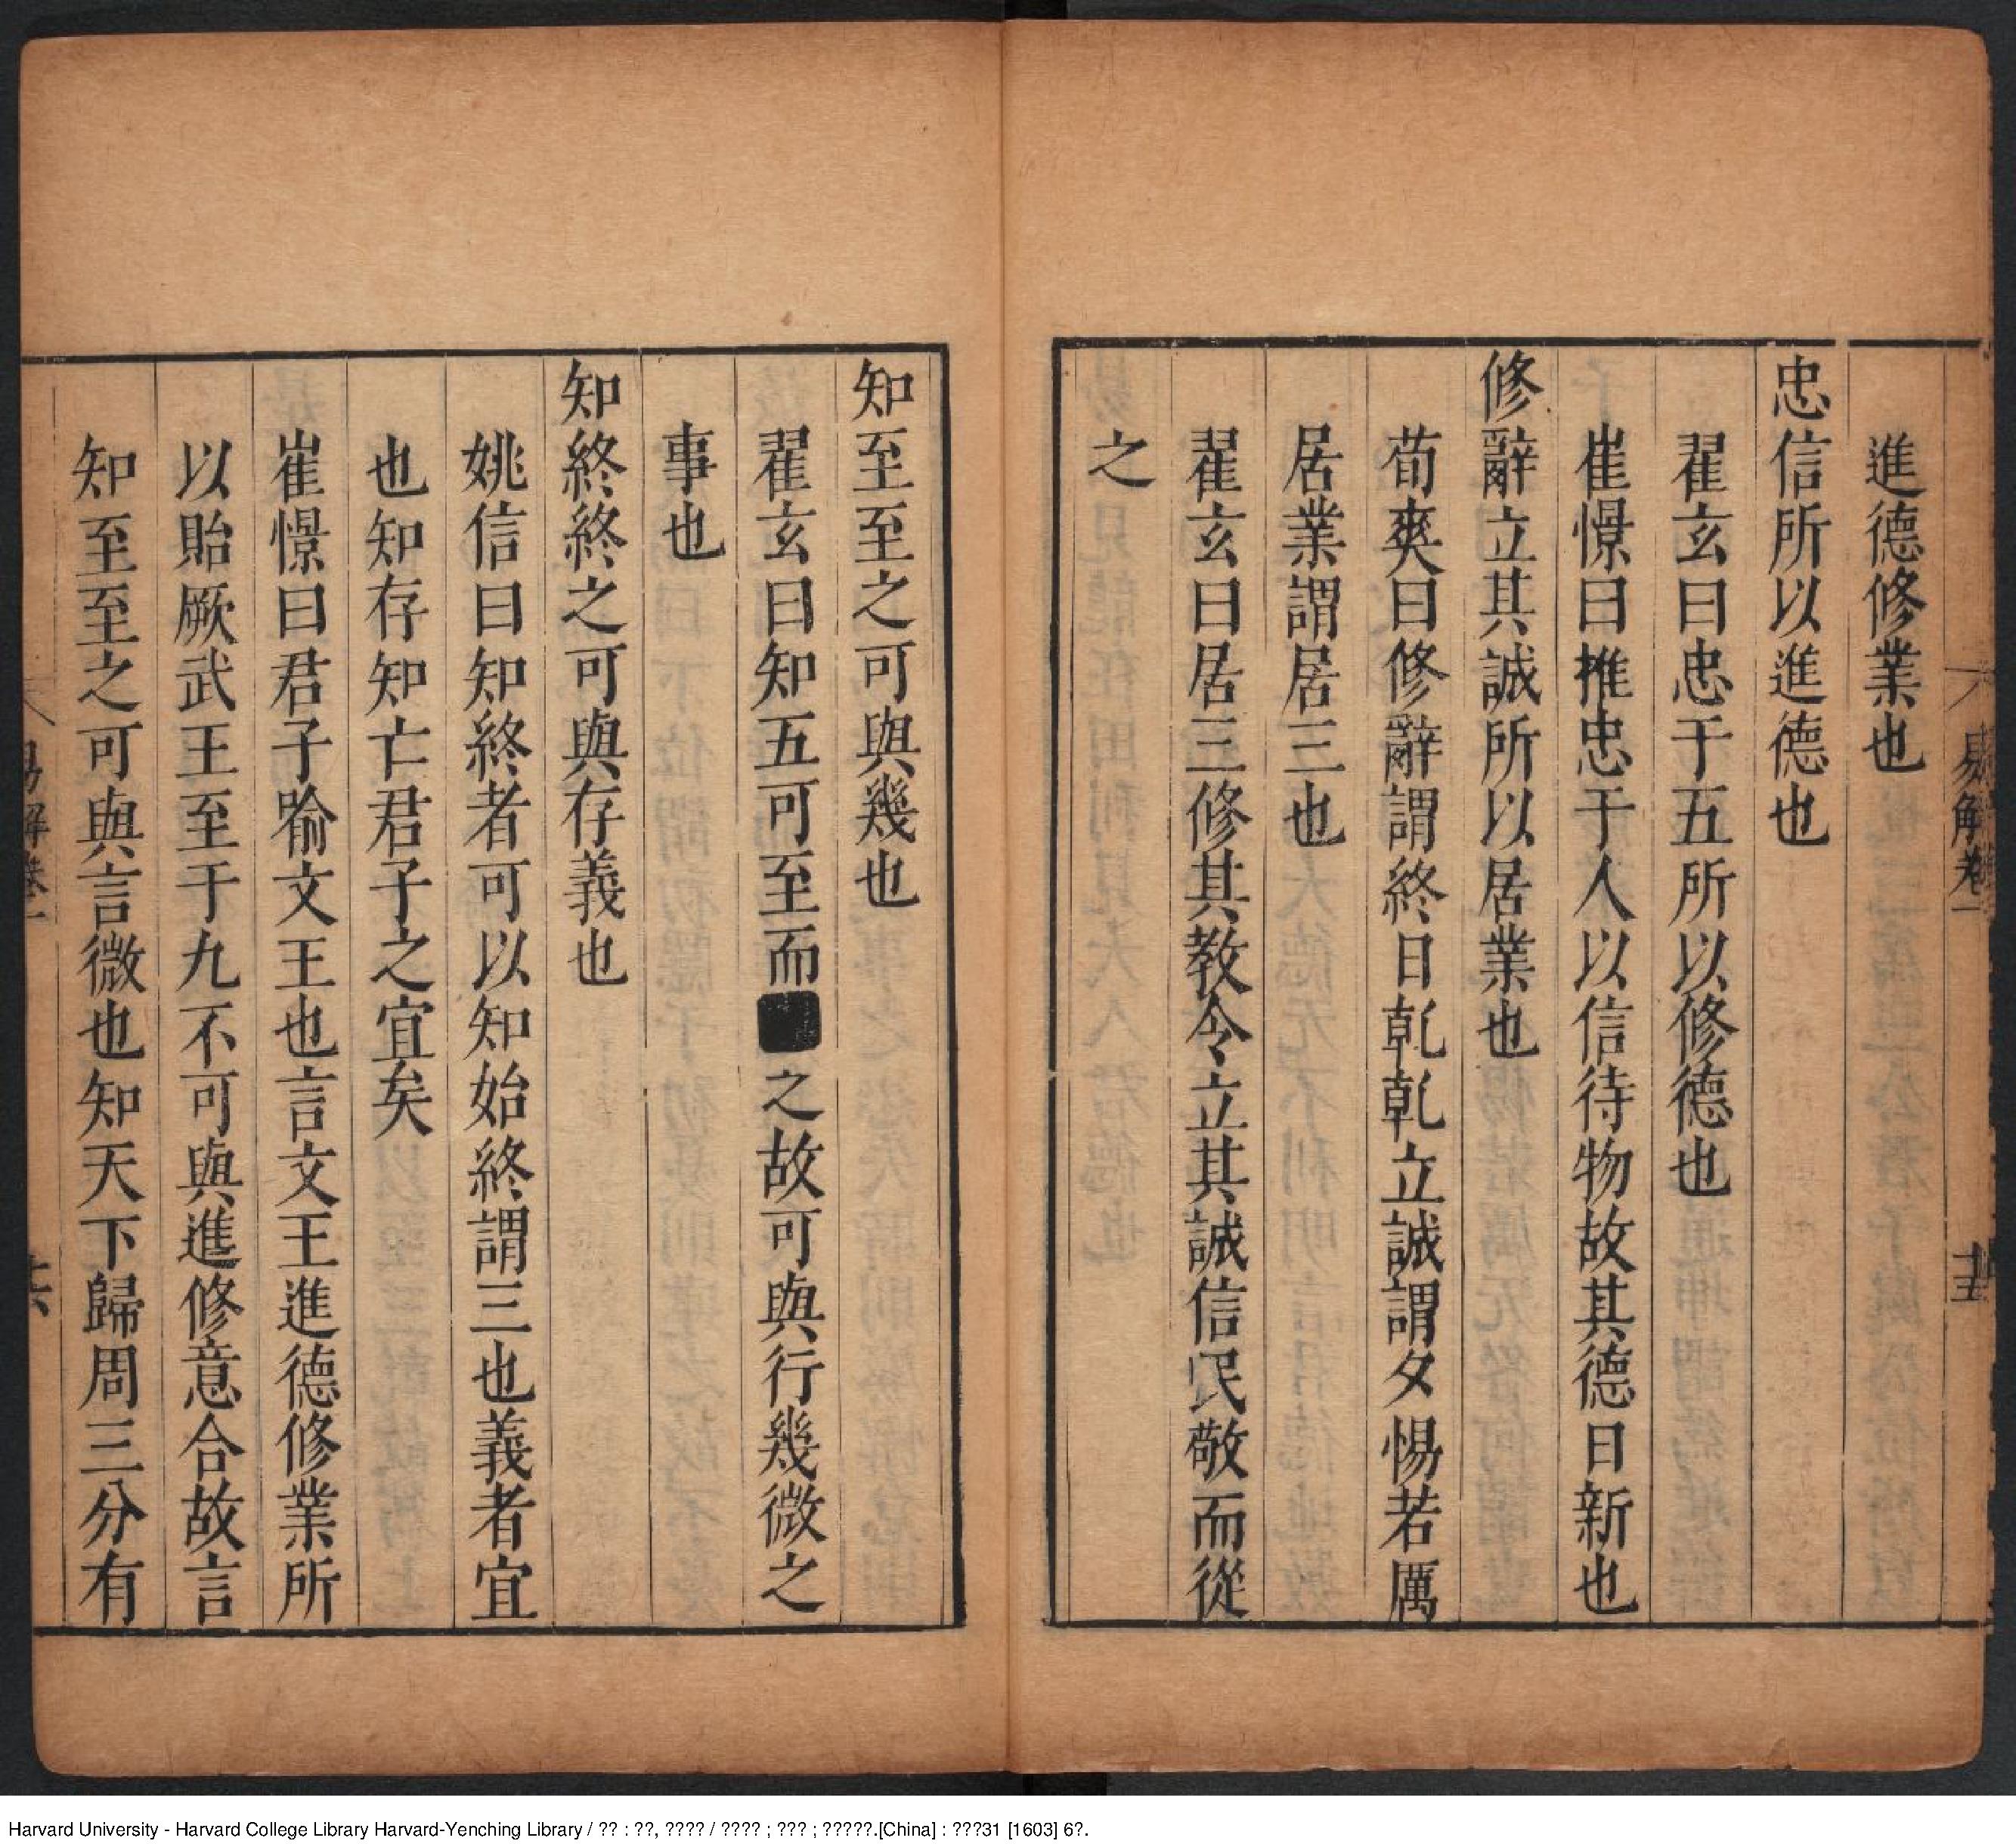 易解卷一
十五
進德修業也
忠信所以進德也
翟玄曰忠于五所以修德也
崔憬曰推忠于人以信待物故其德日新也
修辭立其誠所以居業也
荀爽曰修辭謂終日乾乾立誠謂夕惕若厲
居業謂居三也
翟玄曰居三修其教令立其誠信民敬而從
之
知至至之可與幾也
翟玄曰知五可至而■之故可與行幾微之
事也
知終終之可與存義也
姚信曰知終者可以知始終謂三也義者宜
也知存知亡君子之宜矣
崔憬曰君子喻文王也言文王進德修業所
以貽厥武王至于九不可與進修意合故言
知至至之可與言微也知天下歸周三分有
易解卷一
十六
Harvard University - Harvard College Library Harvard-Yenching Library / ?? : ??, ???? / ???? ; ??? ; ?????.[China] : ???31 [1603] 6?.